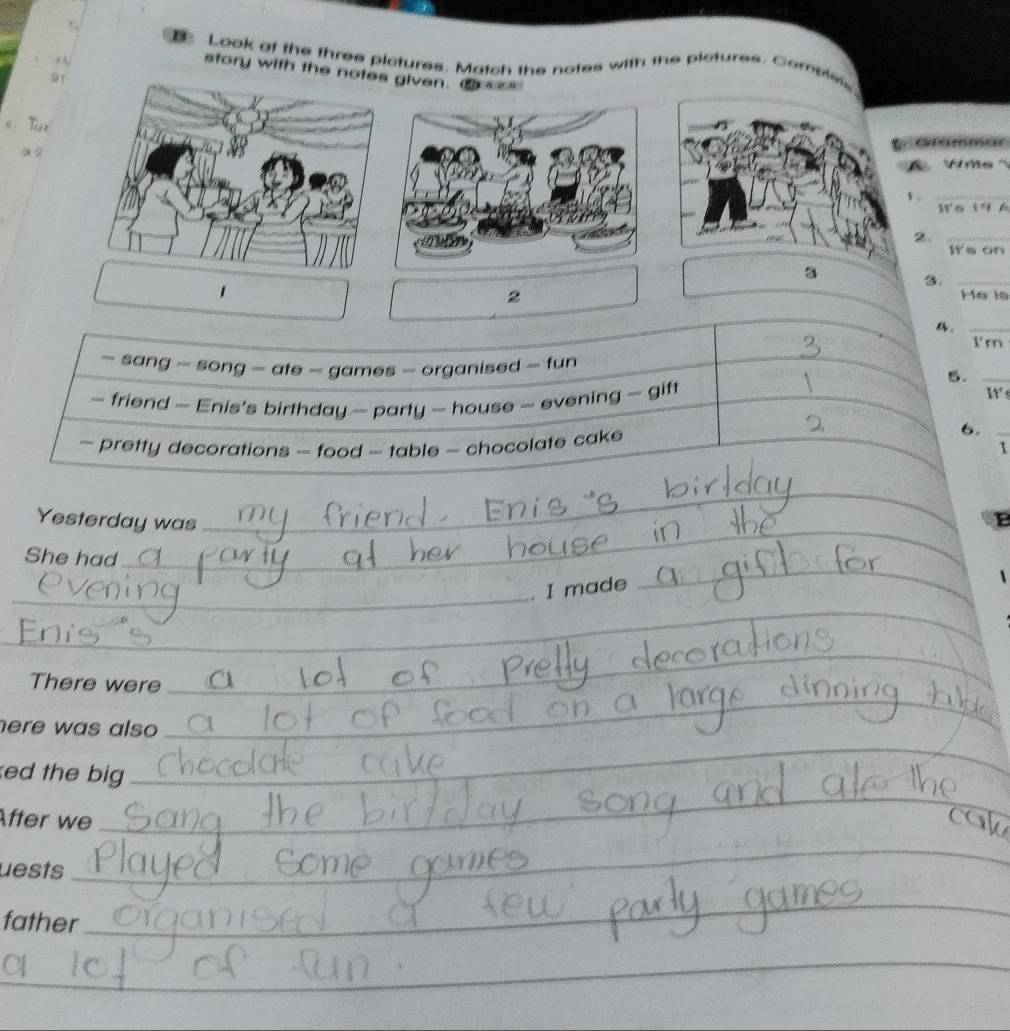 B Look at the three pictures. Match the notes with the pictures.
story with the notes given.
1
2
3
– sang – song – ate – games – organised – fun 3
– friend – Enis's birthday – party – house – evening – gift 1
– pretty decorations – food – table – chocolate cake 2
Yesterday was my friend. Enis's birtday
She had a party at her house in the
evening . I made a gift for
Enis's
There were a lot of pretty decorations
here was also a lot of food on a large dinning table
ked the big chocolate cake
After we sang the birtday song and ate the
cake
uests Played some games
father organised a few party games
a lot of fun.
Grammar
A
1.
It's
2.
It's on
3.
He is
4.
I'm
5.
It's
6.
I
B